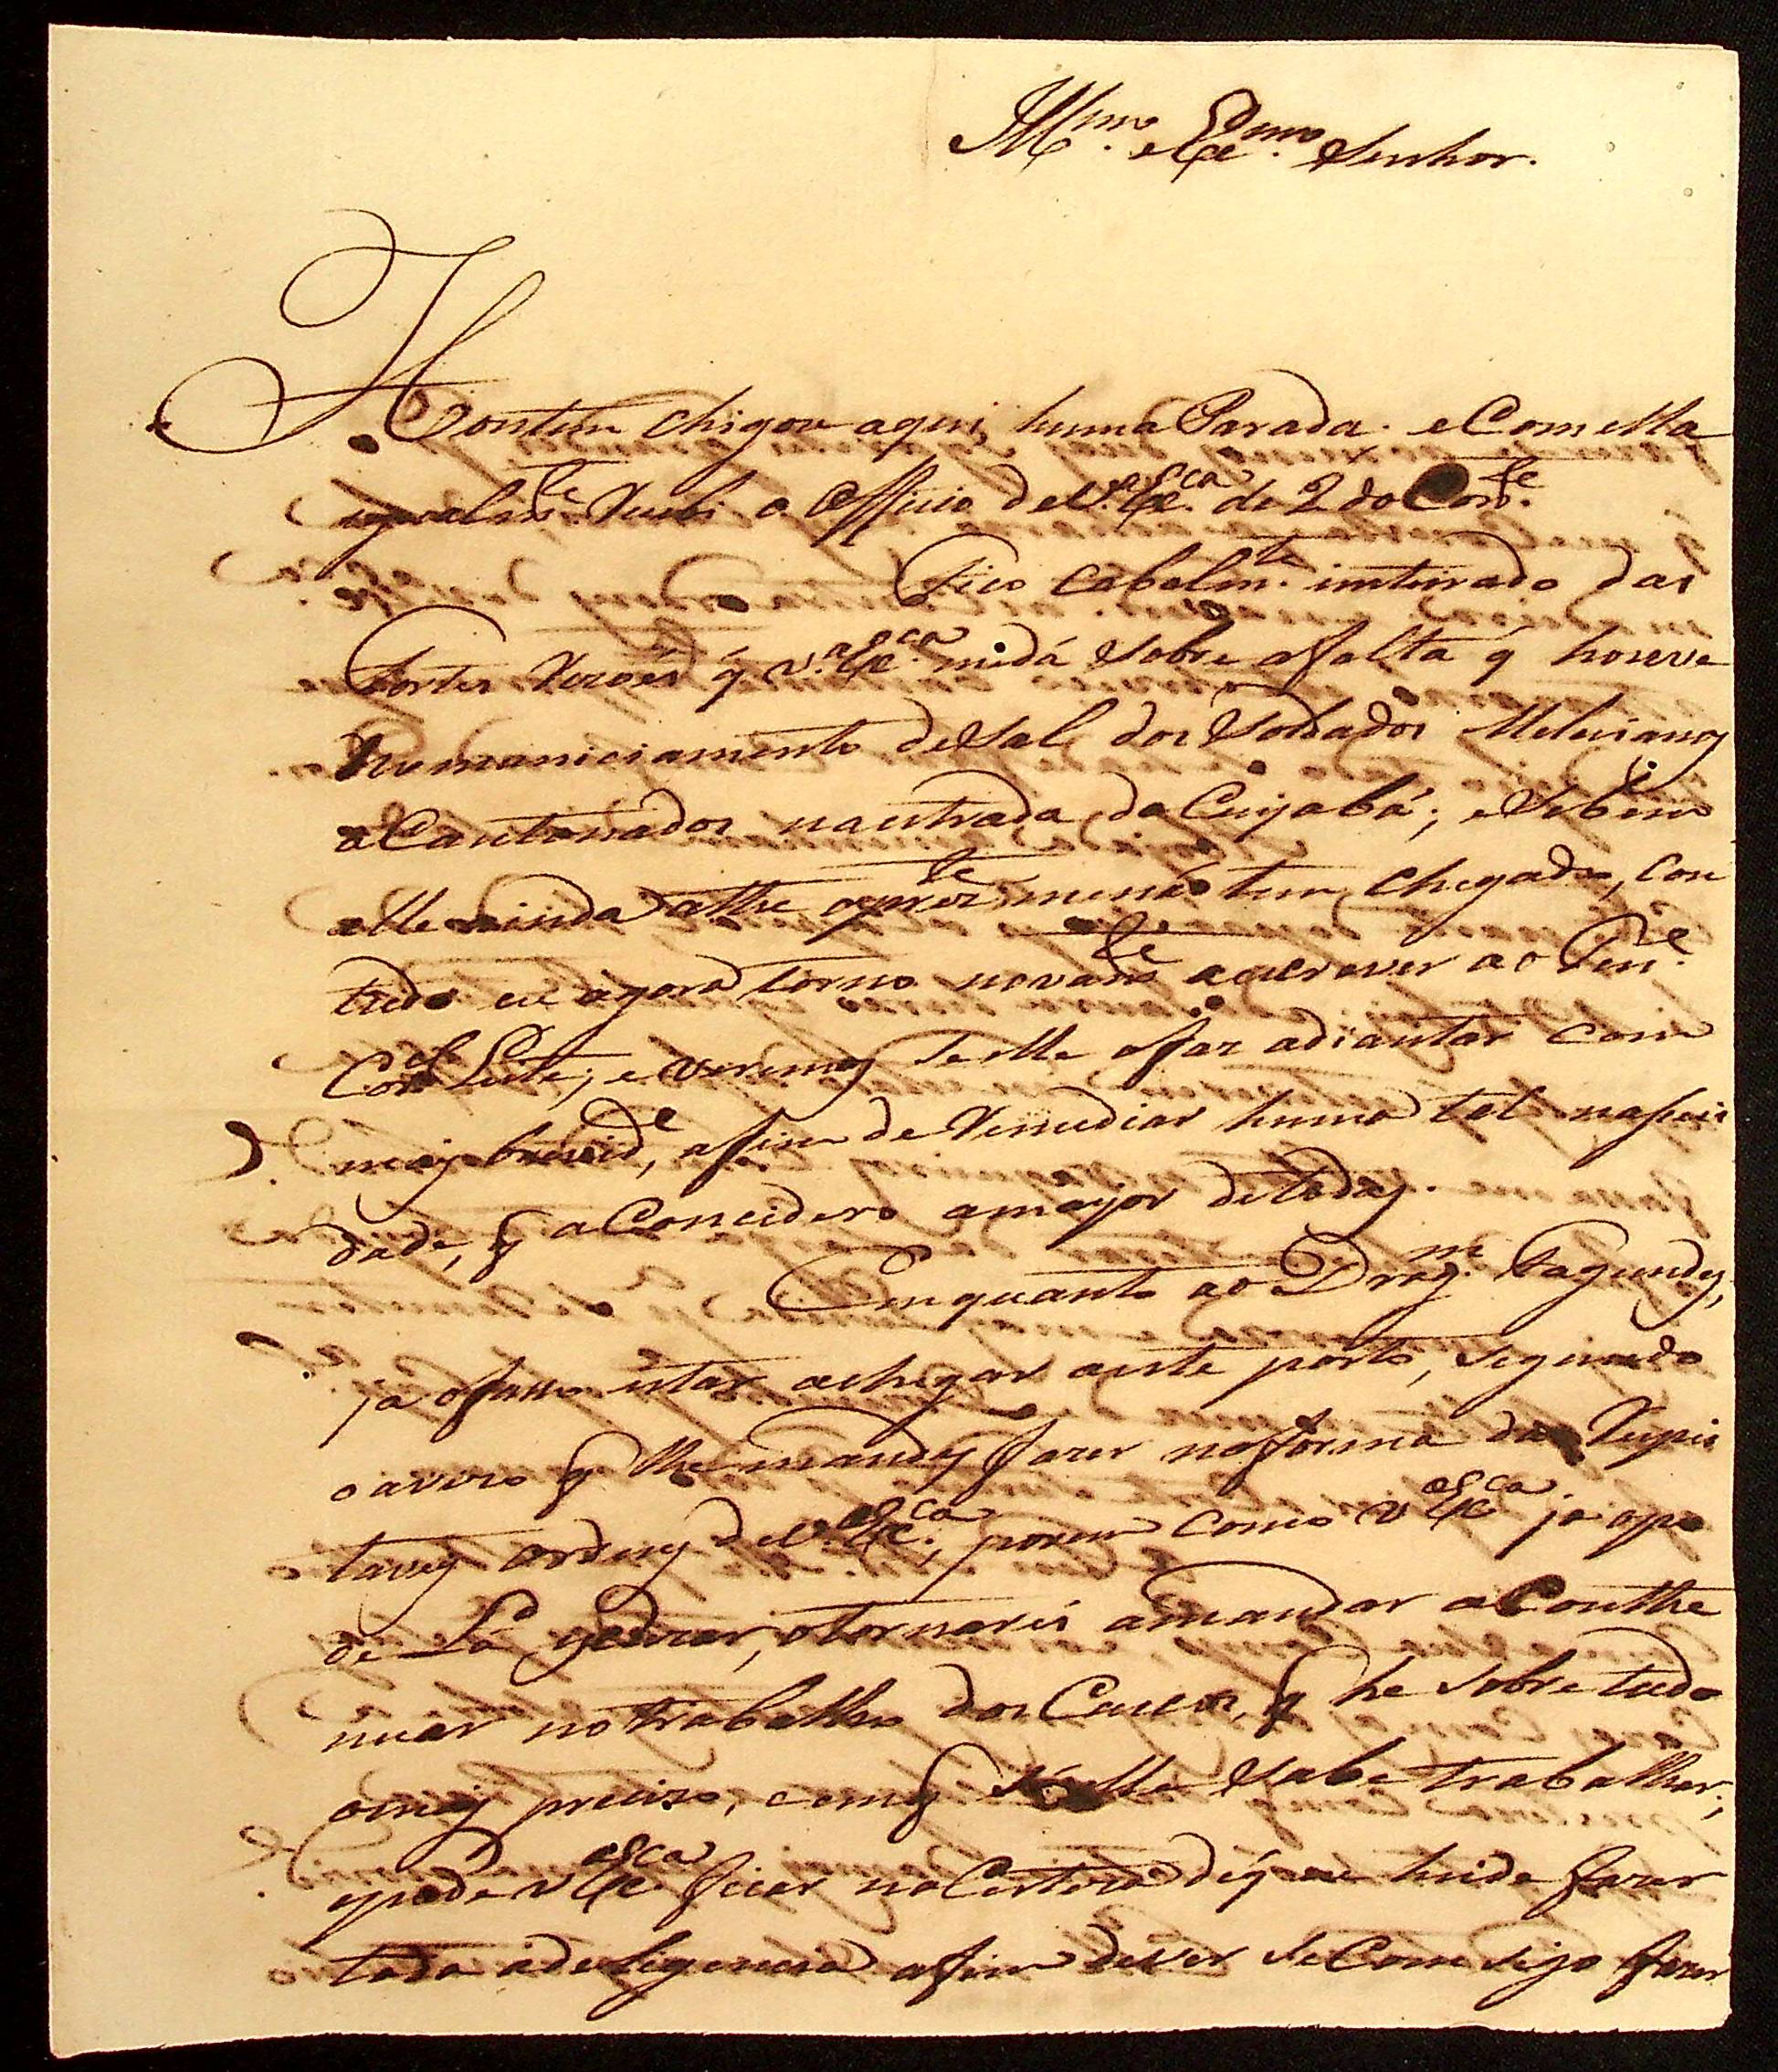 Illmo. e Exmo. Senhor.
Hontem chigou aqui huma Parada. e Com ella
igoalmte. Recebi o Officio de V.a Exca. de 2 do Corrte.
Fico cabalmte. inteirado das
Fortes Rezoés q̃ V.a Exca. me dá sobre a falta q̃ houve
no moniciamento de Sal dos Soldados Meleciannos
aCantonados na estrada do Cuyabá; e Se bem
elle ainda athe oprezte me não tem chegado, Con
tudo eu agora torno novamte a escrever ao Tene.
Corel Leite, e veremos Se elle o faz adiantar com
mais brevide, afim de Remediar huma tal nasseci
dade, q̃ a Concidero a mayor de todas.
Emquanto ao Dragm. Fagundes,
ja o fasso estar a chegar a este porto, segundo
o avizo q̃ lhe mandey fazer na forma das Respei
taveis ordens de V.a Exca., porem como V.a Exca. ja o po
de Lá gediar, o tornareis a mandar a Conthe
nuar no trabalho dos Cascos, q̃ he sobre tudo
o mais precizo, em q̃ Só elle Sabe trabalhar;
e pode V.a Exca. ficar na Certeza de q̃ eu hei de fazer
toda a deligencia afim de ver Se Comsigo fazer